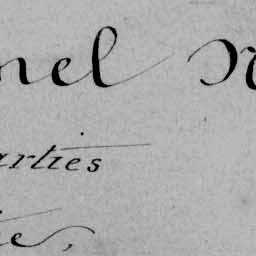 nel
arties
te,